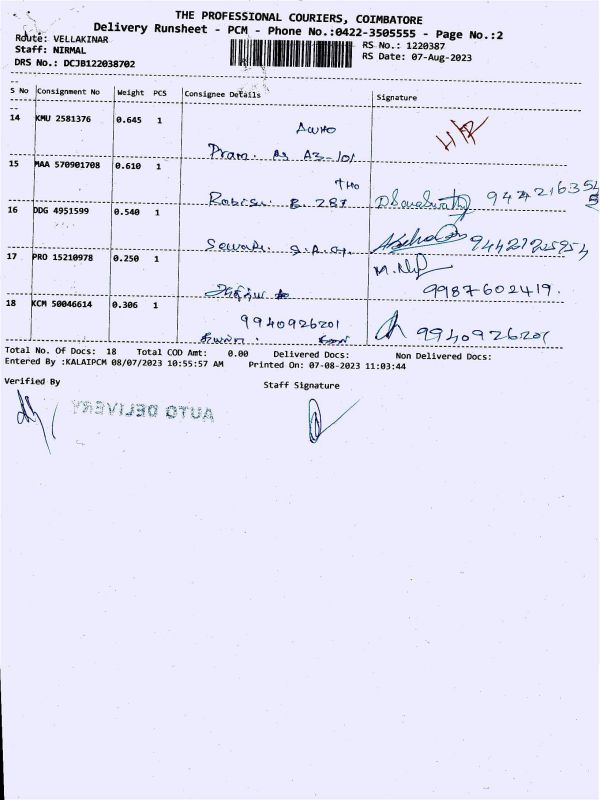 THE PROFESSIONAL COURIERS, COIMBATORE
Delivery Runsheet - PCM - Phone No.:0422-3505555 - Page No.:2
Route: VELLAKINAR
RS No.: 1220387
Staff: NIRMAL
RS Date: 07-Aug-2023
DRS No.: DCJB122038702
S No Consignment No Weight PCS Consignee Details Signature
14 KMU 2581376 0.645 1
AWHO
Pram. A3-101
15 MAA 570901708 0.610 1
16 DDG 4951599 0.540 1
9442725954
17 PRO 15210978 0.250 1
9987602419.
18 KCM 50046614 0.306 1
9940926201 9940926201
Total No. Of Docs: 18 Total COD Amt: 0.00 Delivered Docs: Non Delivered Docs:
Entered By :KALAIPCM 08/07/2023 10:55:57 AM Printed On: 07-08-2023 11:03:44
Verified By Staff Signature
AUTO DELIVERY